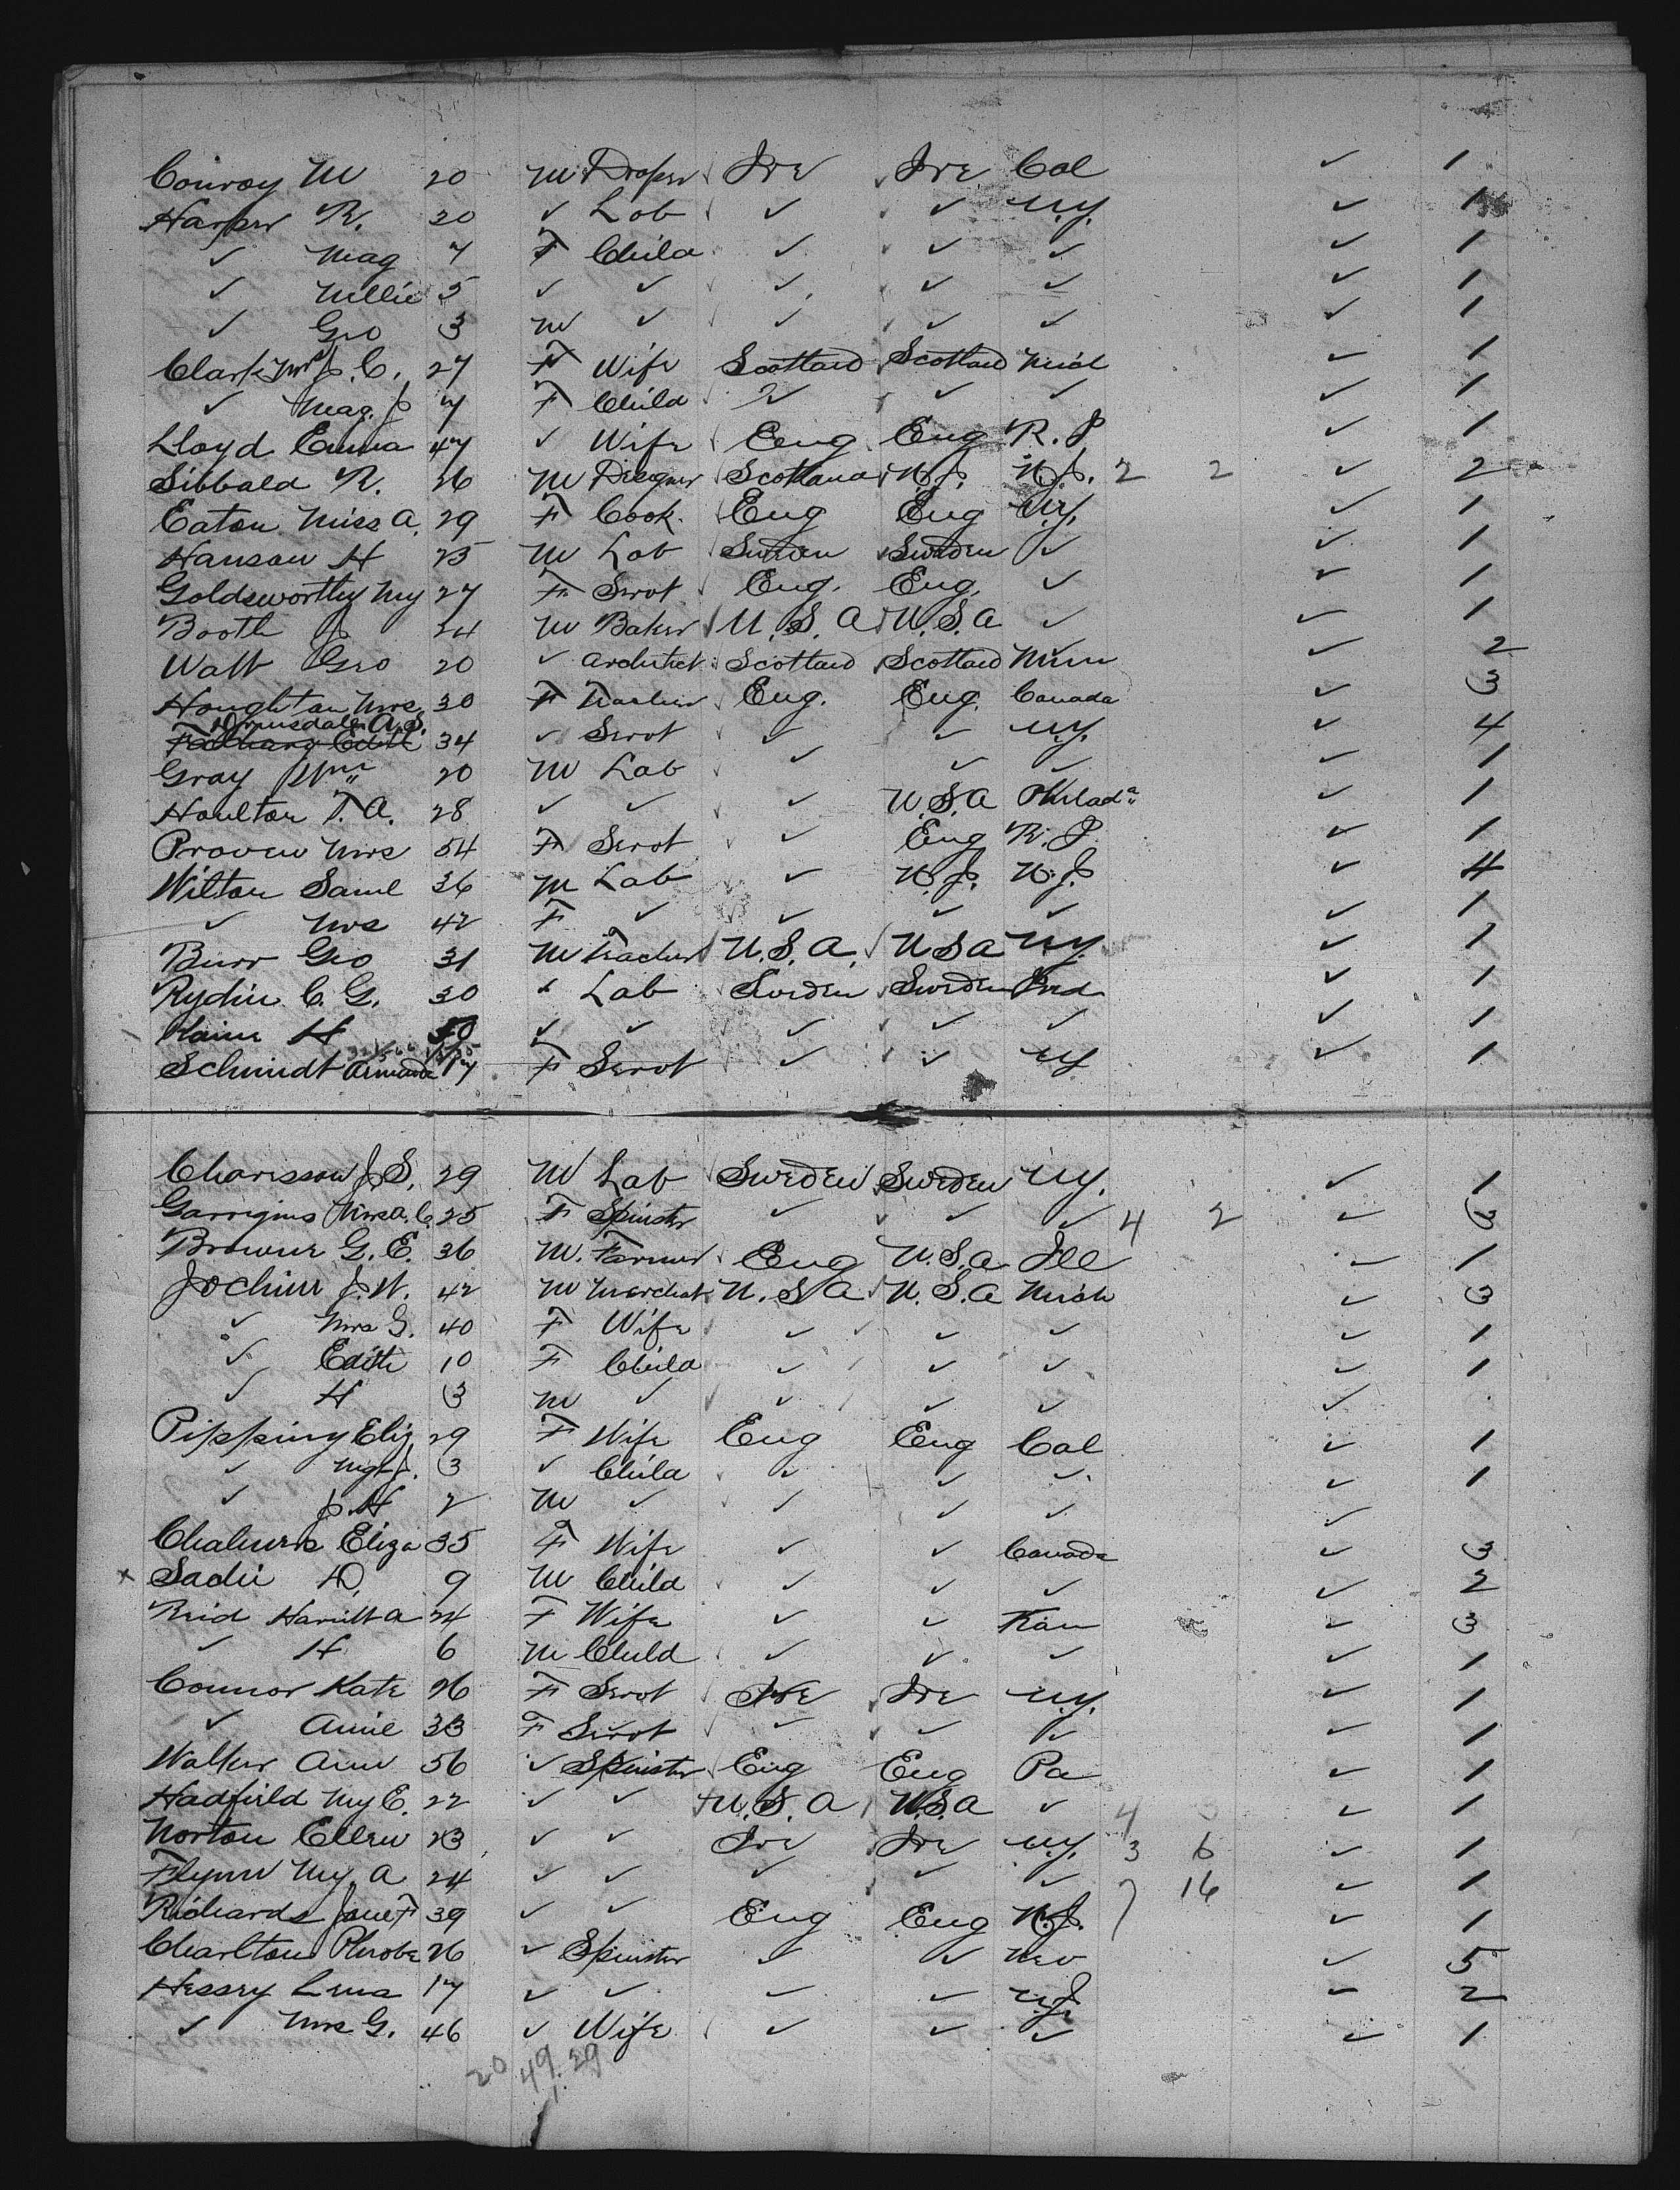 Conroy M 20 M Draper Ire Ire Cal ✓ 1
Harper R. 30 ✓ Lab ✓ ✓ NY. ✓ 1
✓ Mag 7 F Child ✓ ✓ ✓ ✓ 1
✓ Nellie 5 ✓ ✓ ✓ ✓ ✓ ✓ 1
✓ Geo 3 M ✓ ✓ ✓ ✓ ✓ 1
Clark Mrs J. C. 27 F Wife Scotland Scotland Mich ✓ 1
✓ Mag. J 7 F Child ✓ ✓ ✓ ✓ 1
Lloyd Emma 47 ✓ Wife Eng Eng R. I ✓ 1
Sibbald R. 26 M Scotland N.J. N.J. 2 2 ✓ 2
Eaton Miss A. 29 F Cook. Eng Eng NY. ✓ 1
Hanson H 25 M Lab Sweden Sweden ✓ ✓ 1
Goldsworthy My 27 F Servt Eng. Eng. ✓ ✓ 1
Booth J 24 M Baker U. S. A U.S.A ✓ ✓ 1
Watt Geo 20 ✓ Architect Scotland Scotland Minn ✓ 2
Houghton Mrs. 30 F Eng. Eng. Canada ✓ 3
A. S.
34 ✓ Servt ✓ ✓ NY. ✓ 4
Gray Wm 20 M Lab ✓ ✓ ✓ ✓ 1
Houlton T. A. 28 ✓ ✓ ✓ U.S.A Philada ✓ 1
Proven Mrs 54 F Servt ✓ Eng R. I ✓ 1
Wilton Saml 36 M Lab ✓ N.J. N.J. ✓ 4
✓ Mrs 42 F ✓ ✓ ✓ ✓ ✓ 1
Burr Geo 31 M Teacher U.S.A. U S A NY. ✓ 1
Rydin C. G. 30 ✓ Lab Sweden Sweden Ind ✓ 1
H 50 ✓ ✓ ✓ ✓ ✓ ✓ 1
Schmidt Amanda 17 F Servt ✓ ✓ NY ✓ 1
J. S. 29 M Lab Sweden Sweden NY. ✓ 1
Garrigus Mrs A. C. 25 F Spinster ✓ ✓ ✓ 4 2 ✓ 3
Browne G. E. 36 M. Farmer Eng U.S.A Ill ✓ 1
Jochim J. W. 42 M Merchat U. S A U. S. A Mich ✓ 3
✓ Mrs G. 40 F Wife ✓ ✓ ✓ ✓ 1
✓ Edith 10 F Child ✓ ✓ ✓ ✓ 1
✓ H 3 M ✓ ✓ ✓ ✓ ✓
Pipping Eliz 29 F Wife Eng Eng Cal ✓ 1
✓ Mgt J. 3 ✓ Child ✓ ✓ ✓ ✓ 1
✓ J. H 2 M ✓ ✓ ✓ ✓ ✓
Chalmers Eliza 35 F Wife ✓ ✓ Canada ✓ 3
x Sadie D. 9 M Child ✓ ✓ ✓ ✓ 2
Reid Harriett A 24 F Wife ✓ ✓ Kan ✓ 3
✓ H 6 M Child ✓ ✓ ✓ ✓ 1
Connor Kate 26 F Servt Ire Ire NY. ✓ 1
✓ Annie 33 F Servt ✓ ✓ ✓ ✓ 1
Walker Ann 56 ✓ Spinster Eng Eng Pa ✓ 1
Hadfield My E. 22 ✓ ✓ U. S. A U.S.A ✓ 4 ✓ 1
Norton Ellen 23 ✓ ✓ Ire Ire NY. 3 6 ✓ 1
Flynn My. A 24 ✓ ✓ ✓ ✓ ✓ 7 16 ✓ 1
Richards Jane F 39 ✓ ✓ Eng Eng N.J. ✓ 1
Charlton Phoebe 26 ✓ Spinster ✓ ✓ Nev ✓ 5
Hessey Lena 17 ✓ ✓ ✓ ✓ NJ ✓ 2
✓ Mrs G. 46 ✓ Wife ✓ ✓ ✓ ✓ 1
20 49. 29
1.